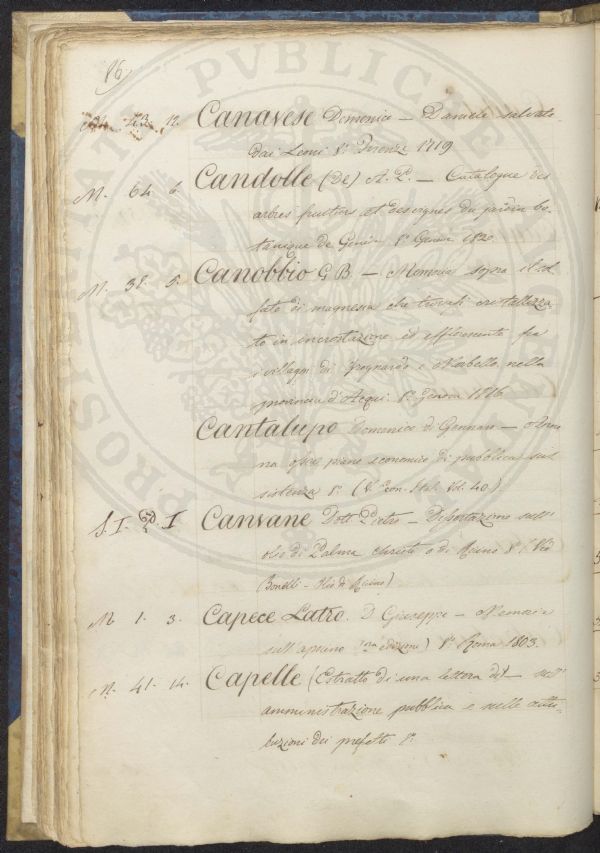 86
12. CANAVESE Domenico — Daniele salvato
dai Leoni 8.° Firenze 1719
M. 64. 6. CANDOLLE (De) A. P. — Catalogue des
arbres fruitiers et du jardin bo-
tanique de Genève 8.° Genève 1820
M. 38. 5. CANOBBIO G. B. — Memoria sopra il sol
fato di magnesia che trovasi cristallizza
to in incrostazione ed efflorescente fra
i villaggi di e nella
provincia d'Acqui. 8.° Genova 1816
CANTALUPO Domenico di Gennaro — Anno
na ossia piano economico di pubblica sus
sistenza 8.° (V. Econ. Ital. Vol. 40)
S. I. I CANVANE Dott. Pietro — Dissertazione sull'
olio di Palma christi o di Ricino 8.° (Ved
Bonelli - Olio di Ricino)
M 1. 3. CAPECE LATRO. D. Giuseppe — Memoria
edizione) 8.° Roma 1803.
M. 41. 14. CAPELLE (Estratto di una lettera di) — sull'
amministrazione pubblica e sulle attri-
buzioni dei prefetti 8.°
PROSPERITATI PUBLICAE AUGENDAE